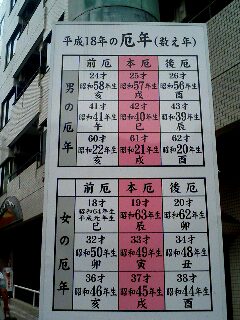 平成18年の厄年(数え年)
男の厄年
前厄 本厄 後厄
24才 25才 26才
昭和58年生 昭和57年生 昭和56年生
亥 戌 酉
41才 42才 43才
昭和41年生 昭和40年生 昭和39年生
午 巳 辰
60才 61才 62才
昭和22年生 昭和21年生 昭和20年生
亥 戌 酉
女の厄年
前厄 本厄 後厄
18才 19才 20才
昭和64年生 平成元年生 昭和63年生 昭和62年生
巳 辰 卯
32才 33才 34才
昭和50年生 昭和49年生 昭和48年生
卯 寅 丑
36才 37才 38才
昭和46年生 昭和45年生 昭和44年生
亥 戌 酉